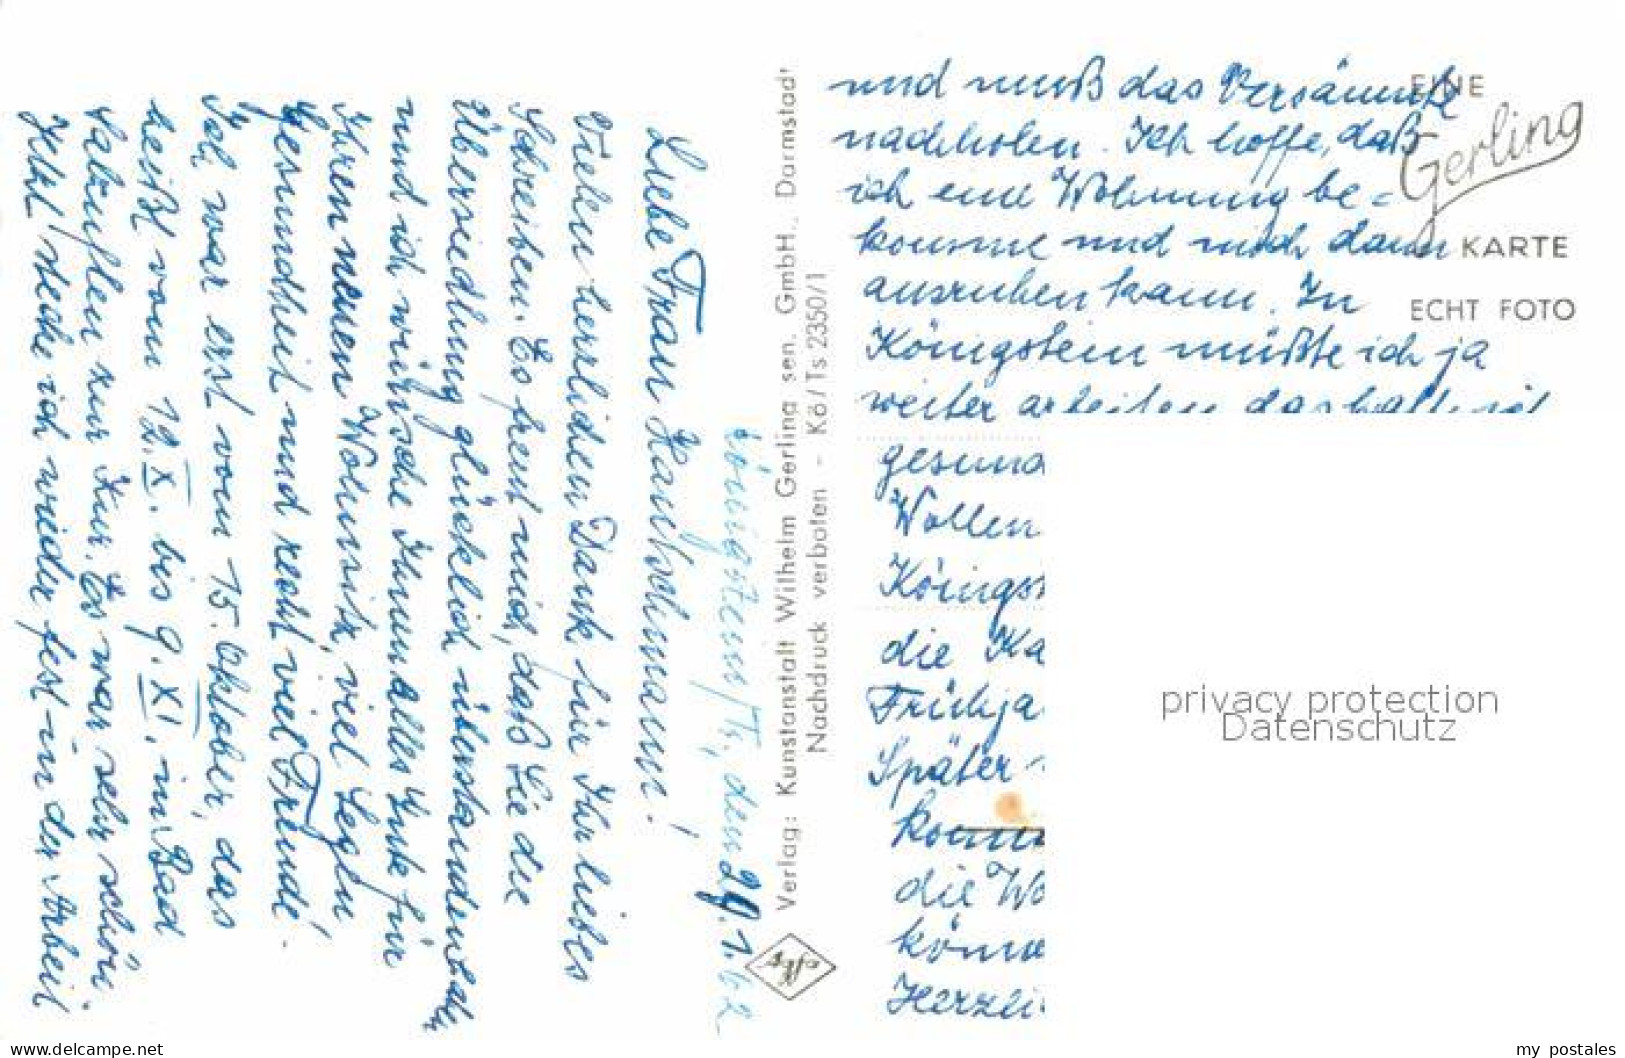 Königstein/Ts, den 29.1.62
Liebe Frau Hanschmann!
Vielen herzlichen Dank für Ihr liebes
Schreiben. Es freut mich, daß Sie die
Übersiedlung glücklich überstanden haben
und ich wünsche Ihnen alles Gute für
Ihren neuen Wohnsitz, viel Segen,
Gesundheit und recht viel Freude.
Ich war erst vom 15. Oktober, das
heißt vom 12. X. bis 9. XI. in Bad
Salzuflen zur Kur. Es war sehr schön.
Jetzt stecke ich wieder fest in der Arbeit
Verlag: Kunstanstalt Wilhelm Gerling sen. GmbH., Darmstadt
Nachdruck verboten - Kö/Ts 2350/1
und muß das Versäumte
nachholen. Ich hoffe, daß
ich eine Wohnung be=
komme und mich dann
ausruhen kann. In
Königstein müßte ich ja
weiter arbeiten, das halt ich
gesund
Wollen
Königst
die Ka
Frühja
Später
komm
die Wo
könne
Herzli
EINE
Gerling
KARTE
ECHT FOTO
privacy protection
Datenschutz
www.delcampe.net
my_postales